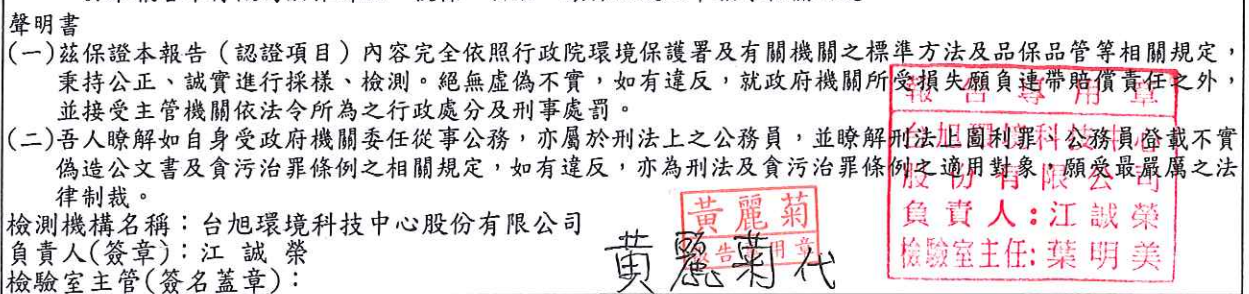 聲明書
(一)茲保證本報告(認證項目)內容完全依照行政院環境保護署及有關機關之標準方法及品保品管等相關規定,
秉持公正、誠實進行採樣、檢測。絕無虛偽不實,如有違反,就政府機關所受損失願負連帶賠償責任之外,
並接受主管機關依法令所為之行政處分及刑事處罰。
(二)吾人瞭解如自身受政府機關委任從事公務,亦屬於刑法上之公務員,並瞭解刑法上圖利罪、公務員登載不實
偽造公文書及貪污治罪條例之相關規定,如有違反,亦為刑法及貪污治罪條例之適用對象,願受最嚴厲之法
律制裁。
檢測機構名稱:台旭環境科技中心股份有限公司
負責人(簽章):江 誠 榮
檢驗室主管(簽名蓋章):
黃麗菊
報告專用章
黃麗菊代
報告專用章
台旭環境科技中心
股份有限公司
負責人:江誠榮
檢驗室主任:葉明美